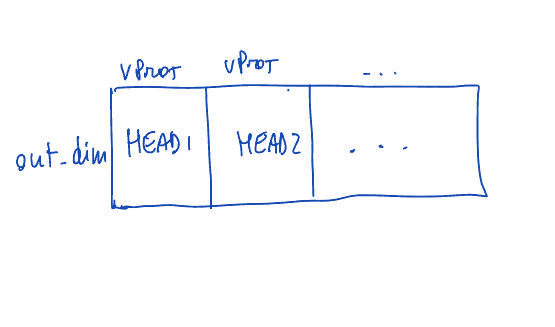 VPROT VPROT ...
out_dim HEAD1 HEAD2 ...